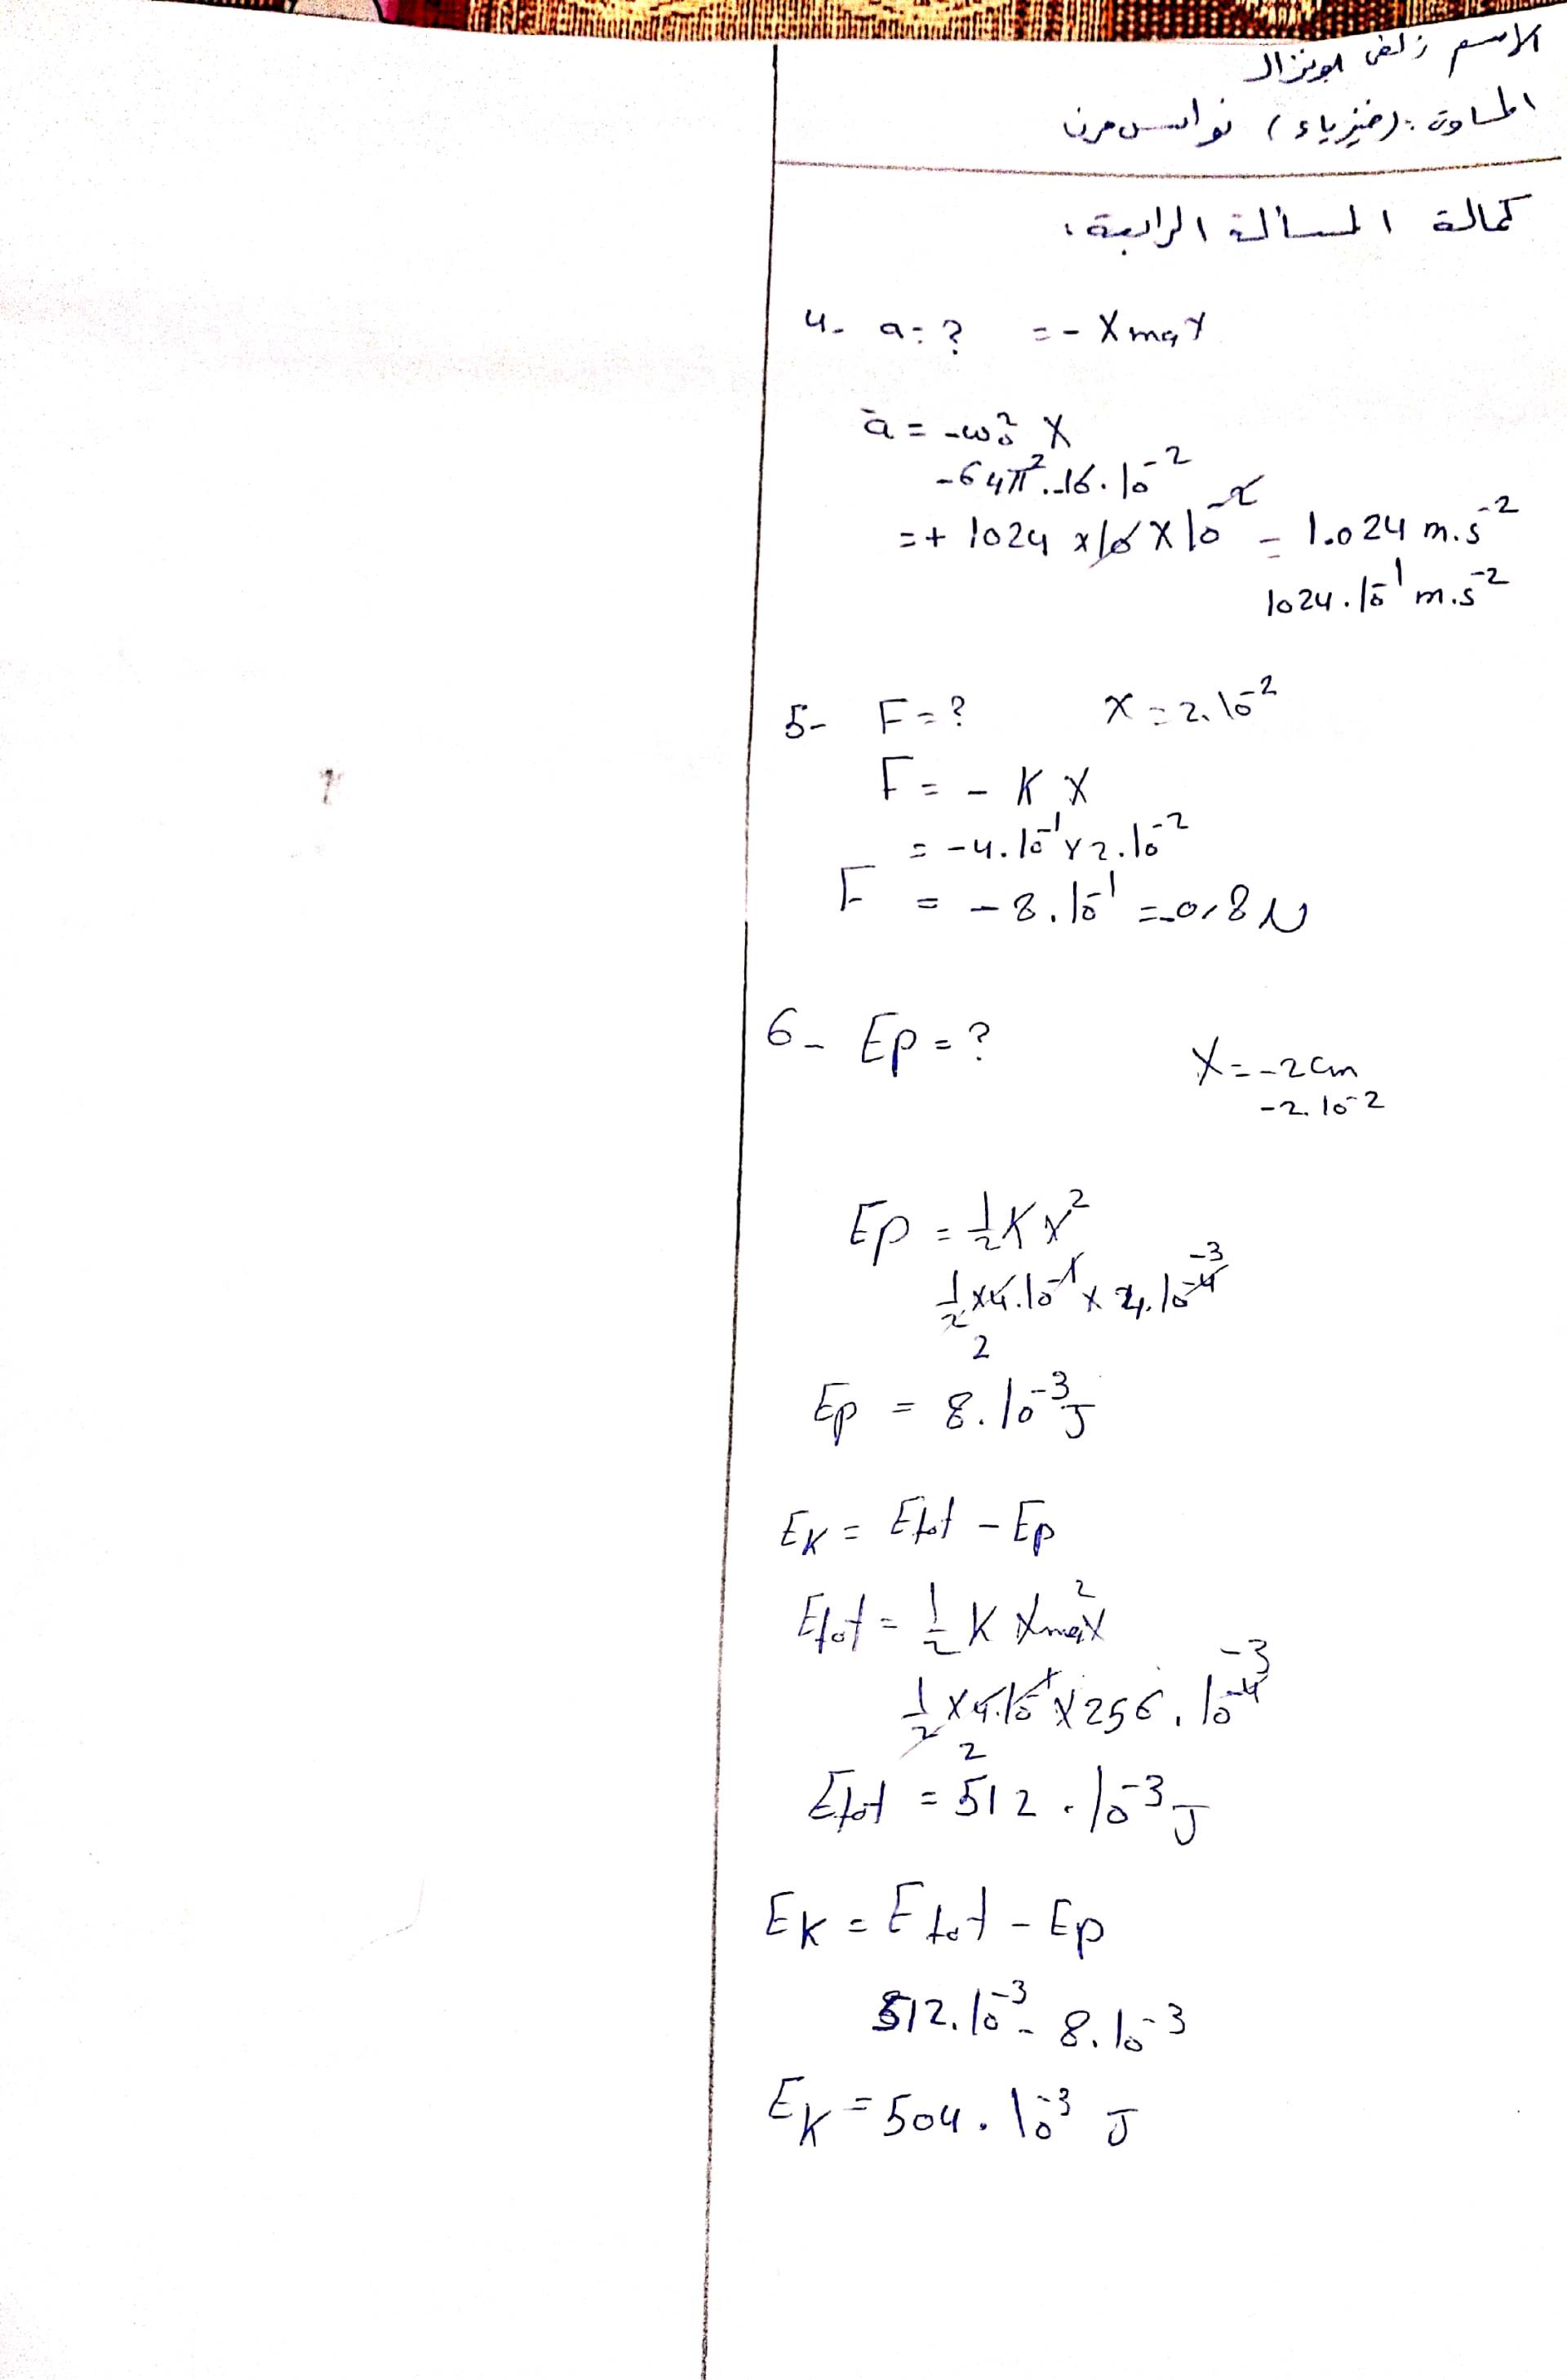 الاسم زلفى بونزال
المادة: (فيزياء) نواس مرن
كمالة المسألة الرابعة:
4- a = ? = - Xmax
a̅ = -ω₀² X
-64π².-16.10⁻²
= + 1024 x 10 X 10⁻² = 1.024 m.s⁻²
1024.10⁻¹ m.s⁻²
5- F = ? X = 2.10⁻²
F = - K X
= -4.10¹ x 2.10⁻²
F = - 8.10⁻¹ = -0,8 N
6- Ep = ? X = -2 cm
-2.10⁻²
Ep = 1/2 K X²
1/2 x 4.10¹ x 4.10⁻⁴ ⁻³
2
Ep = 8.10⁻³ J
EK = Etot - Ep
Etot = 1/2 K Xmax²
1/2 X 4.10¹ X 256.10⁻⁴ ⁻³
2
Etot = 512.10⁻³ J
EK = Etot - Ep
512.10⁻³ - 8.10⁻³
EK = 504.10⁻³ J